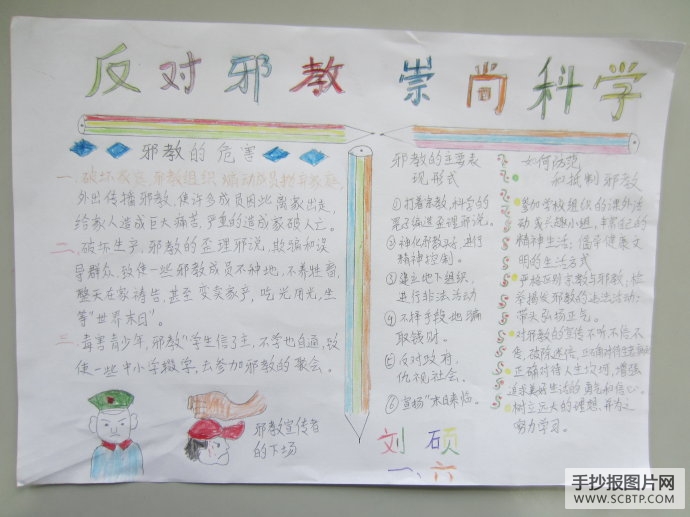 反对邪教 崇尚科学
邪教的危害
一、破坏家庭,邪教组织煽动成员抛弃家庭,
外出传播邪教,使许多成员因此离家出走,
给家人造成巨大痛苦,严重的造成家破人亡。
二、破坏生产,邪教的歪理邪说,欺骗和误
导群众,致使一些邪教成员不种地,不养牲畜,
整天在家祷告,甚至变卖家产,吃光用光,坐
等“世界末日”。
三、毒害青少年,邪教“学生信了主,不学也自通,致
使一些中小学辍学,去参加邪教的聚会。
邪教宣传者
的下场
邪教的主要表
现形式
①打着宗教,科学的
幌子编造歪理邪说。
②神化邪教 ,进行
精神控制。
③建立地下组织,
进行非法活动
④不择手段地骗
取钱财。
⑤反对政府,
仇视社会。
⑥宣扬“末日来临。
如何防范
和抵制邪教
参加学校组织的课外活
动或兴趣小组,丰富自己的
精神生活;倡导健康文
明的生活方式
严格区别宗教与邪教,检
举揭发邪教的违法活动;
带头弘扬正气。
对邪教的宣传不听不信不
传,破除迷信,正确对待生老病死
正确对待人生坎坷,增强
追求美好生活的勇气和信心。
树立远大的理想,并为之
努力学习。
刘硕
一、六
手抄报图片网
WWW.SCBTP.COM